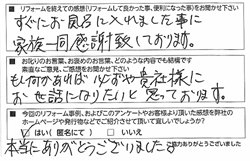 ■リフォームを終えての感想(リフォームして良かった事、便利になった事)をお聞かせ下さい
すぐにお風呂に入れました事に
家族一同感謝致しております。
■お叱りのお言葉、お褒めのお言葉、どのような内容でも結構です
率直なご意見、ご感想をお聞かせ下さい
もし何かあればリ必ずや貴社様に
お世話になりたいと思っております。
■今回のリフォーム事例、およびこのアンケートやお客様より頂いた感想を弊社の
ホームページや発行物などでご紹介させて頂いて宜しいでしょうか?
はい(匿名にて) □いいえ
ご協力ありがとうございました
本当にありがとうございました。